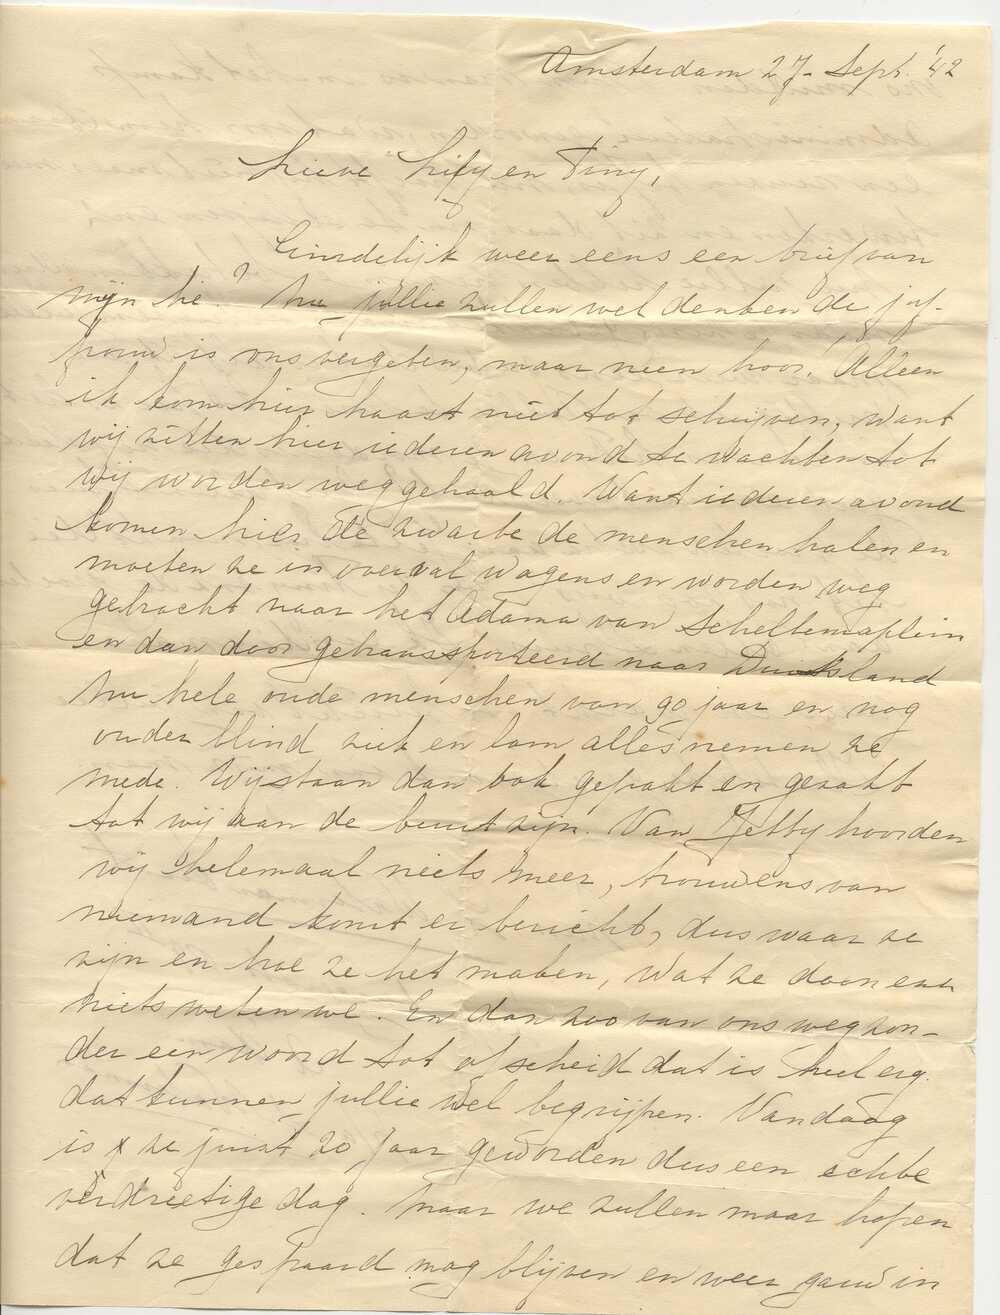 Amsterdam 27 Sept. '42
Lieve Fify en Tiny,
Eindelijk weer eens een brief van
mijn hè? Nu jullie zullen wel denken de juf-
frouw is ons vergeten, maar neen hoor. Alleen
ik kom hier haast niet tot schrijven, want
wij zitten hier iederen avond te wachten tot
wij worden weggehaald. Want iederen avond
komen hier de zwarte de menschen halen en
moeten ze in overval wagens en worden weg
gebracht naar het Adama van Scheltemaplein
en dan door getransporteerd naar Duitsland
Nu hele oude menschen van 90 jaar en nog
ouder blind ziek en lam alles nemen ze
mede. Wij staan dan ook gepakt en gezakt
tot wij aan de beurt zijn. Van Jetty hoorden
wij helemaal niets meer, trouwens van
niemand komt er bericht, dus waar ze
zijn en hoe ze het maken, wat ze doen enz
niets weten we. En dan zoo van ons weg zon-
der een woord tot afscheid dat is heel erg.
dat kunnen jullie wel begrijpen. Vandaag
is x ze juist 20 Jaar geworden dus een echte
verdrietige dag. Maar we zullen maar hopen
dat ze gespaard mag blijven en weer gauw in